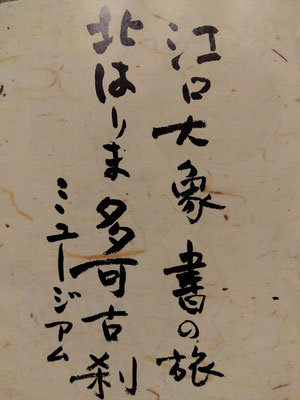 江口大象 書の旅
北はりま多可古刹
ミュージアム